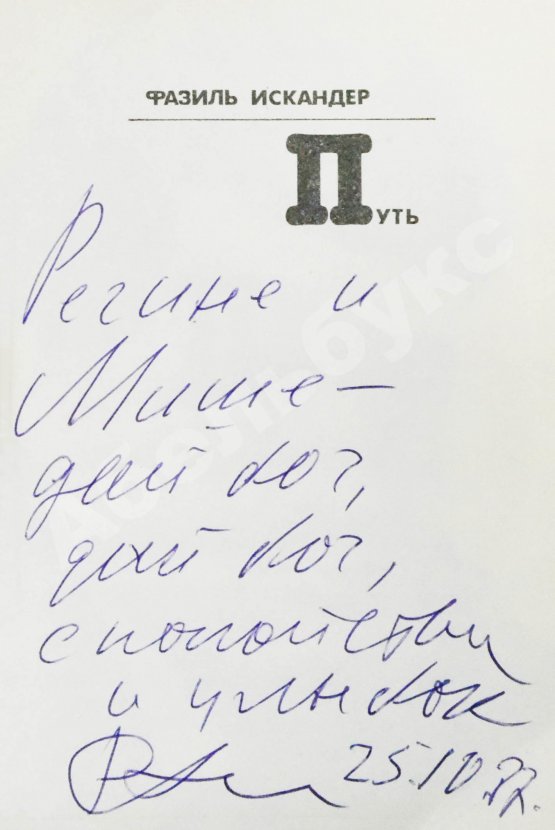 ФАЗИЛЬ ИСКАНДЕР
ПУТЬ
Регине и
Мише –
дай бог,
дай бог,
спокойствия
и улыбок
25.10.87.